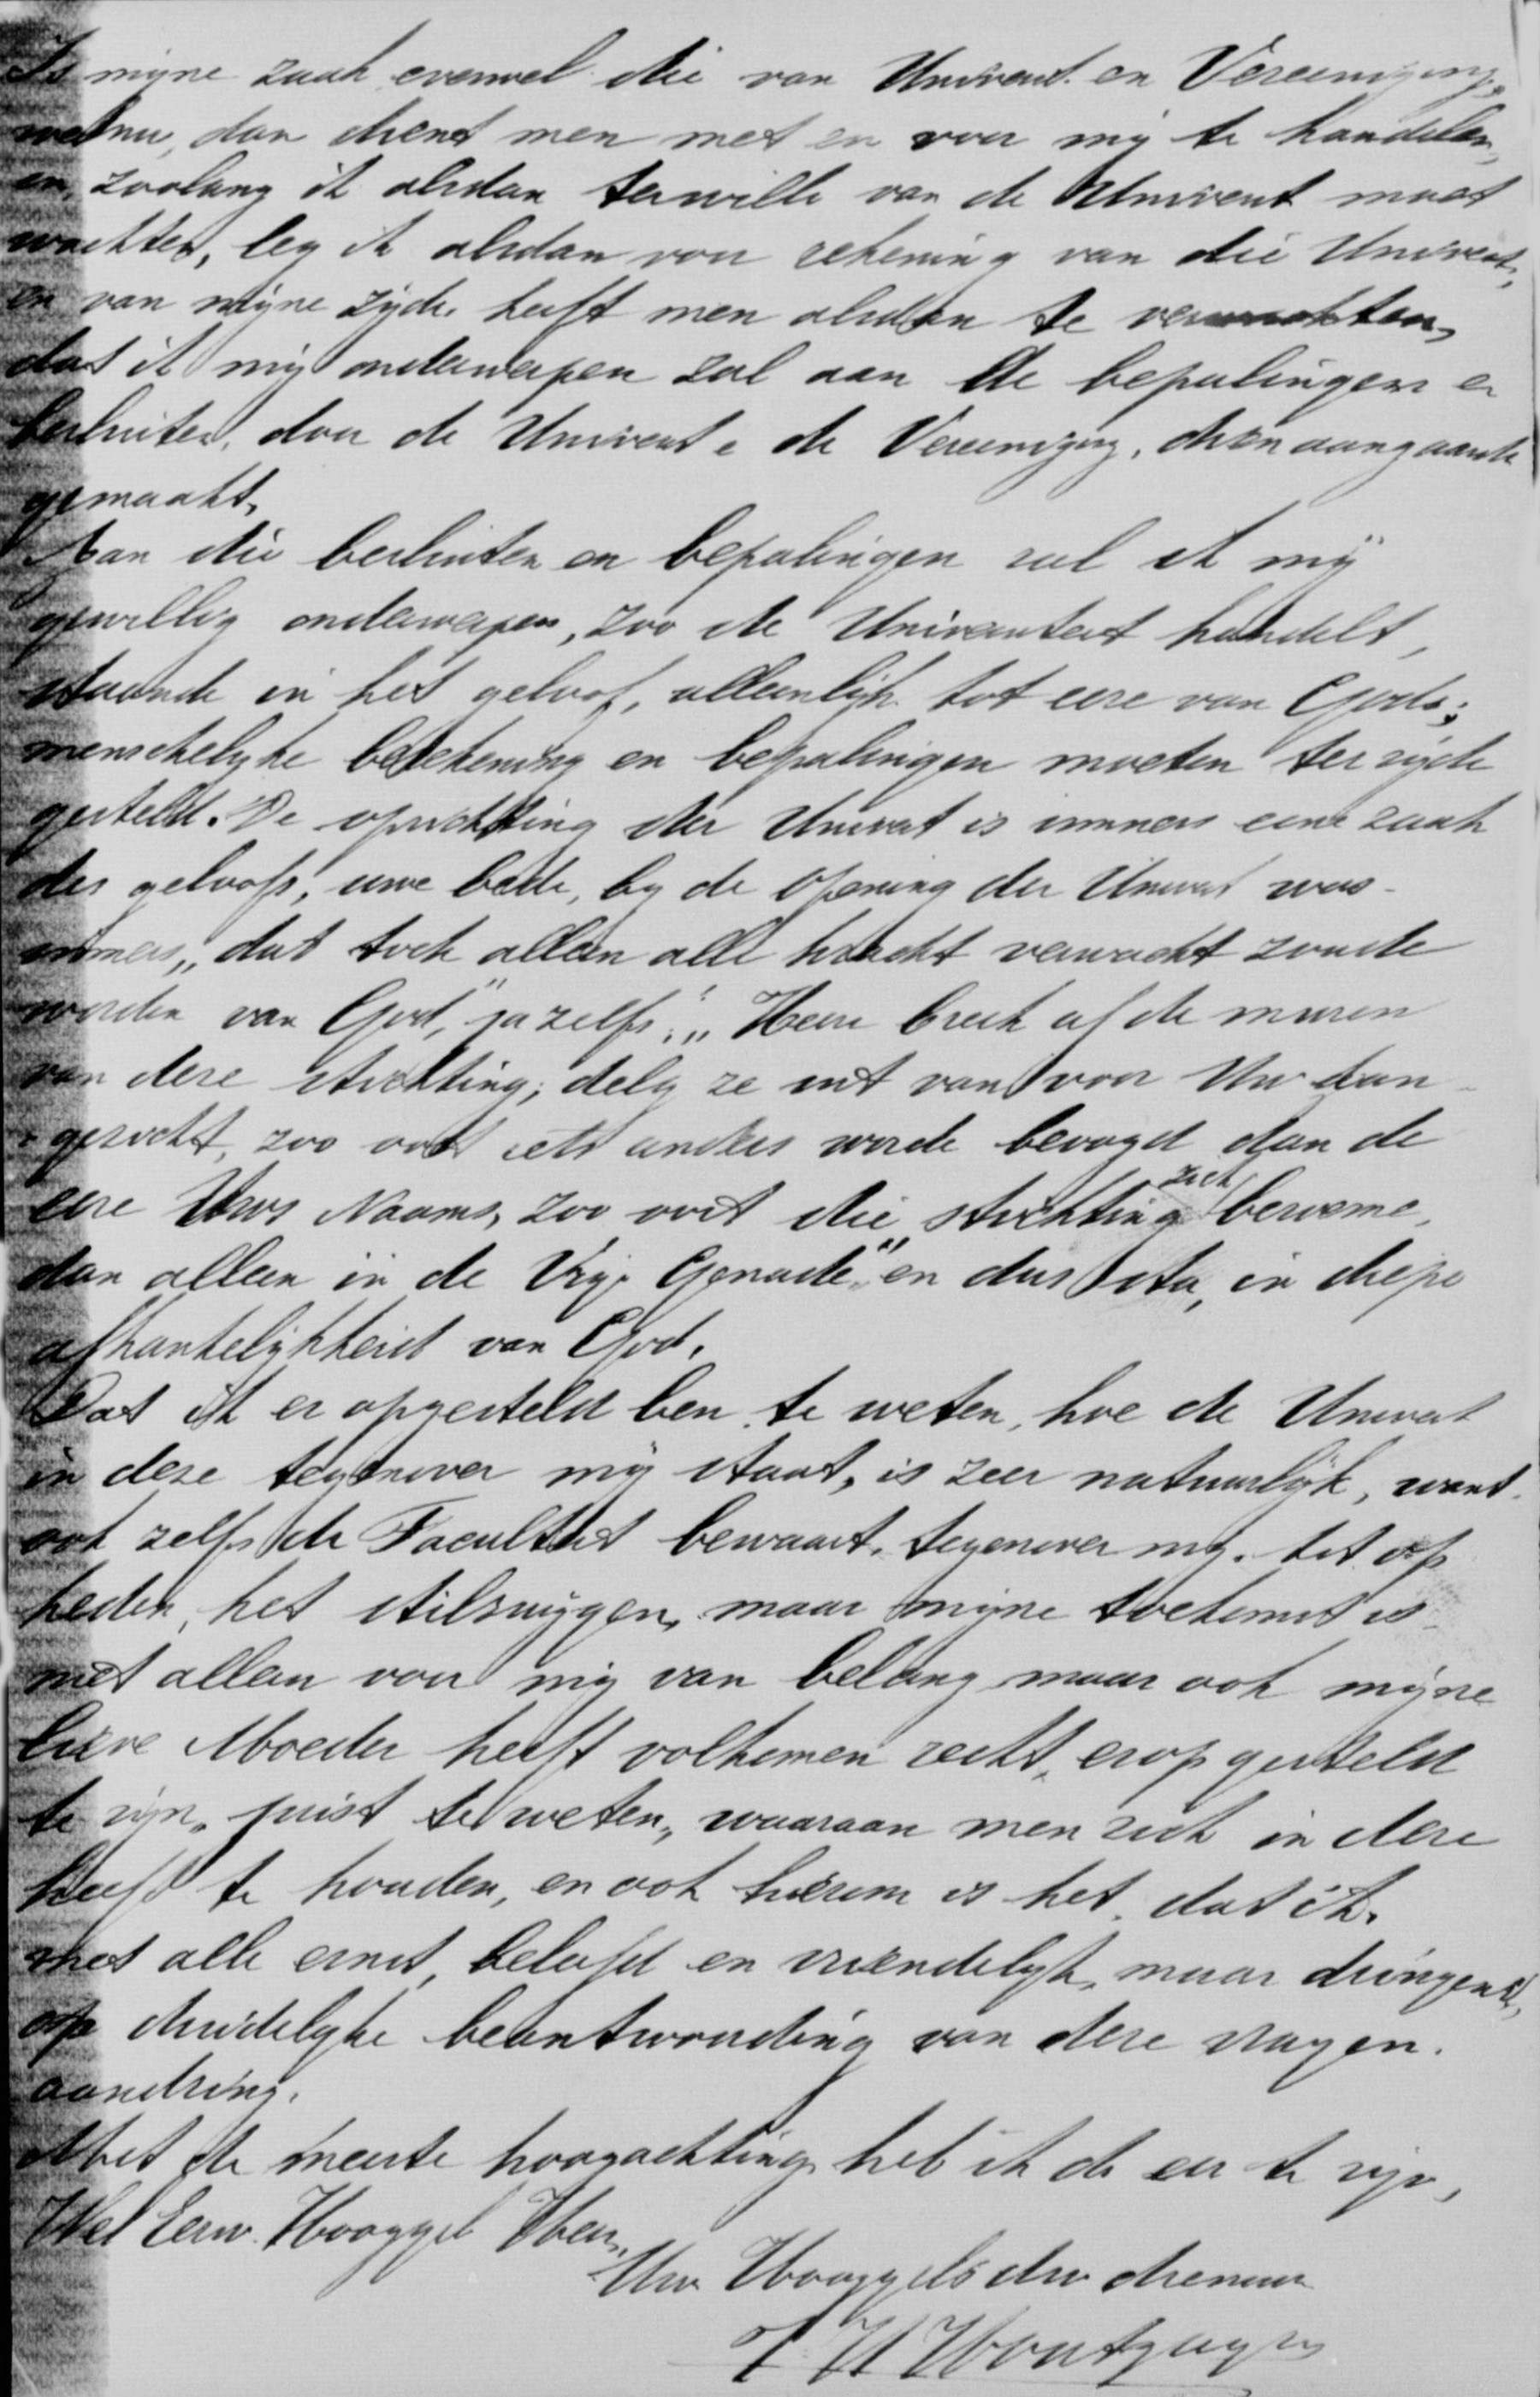 Is mijne zaak evenwel die van Univers. en Vereeniging,
welnu, dan dient men met en voor mij te handelen,
en, zoolang ik alsdan terwille van de Universt moet
wachten, leg ik alsdan voor rekening van die Universt,
en van mijne zijde heeft men alsdan te verwachten,
dat ik mij onderwerpen zal aan de bepalingen en
besluiten, door de Universt & de Vereeniging, dien aangaande
gemaakt.
Aan die besluiten en bepalingen zal ik mij
gewillig onderwerpen, zoo de Universiteit handelt,
staande in het geloof, alleenlijk tot eere van Gods;
menschelijke berekening en bepalingen moeten ter zijde
gesteld. De oprichting der Universt is immers eene zaak
des geloofs, uwe bede, bij de opening der Universt was
immers, „dat toch alleen alle kracht verwacht zoude
worden van God," ja zelfs: „Heere breek af de muren
van deze stichting; delg ze uit van voor Uw aan-
gezicht, zoo ooit iets anders worde beoogd dan de
eere Uws Naams, zoo ooit die stichting zich beroeme,
dan alleen in de Vrije Genade" en dus sta, in diepe
afhankelijkheid van God.
Dat ik er opgesteld ben te weten, hoe de Universt
in deze tegenover mij staat, is zeer natuurlijk, want
ook zelfs de Faculteit bewaart, tegenover mij, tot op
heden, het stilzwijgen, maar mijne toekomst is
niet alleen voor mij van belang maar ook mijne
lieve Moeder heeft volkomen recht, erop gesteld
te zijn, juist te weten, waaraan men zich in deze
heeft te houden, en ook hierom is het, dat ik,
met alle ernst, beleefd en vriendelijk, maar dringend,
op duidelijke beantwoording van deze vragen
aandring.
Met de meeste hoogachting heb ik de eer te zijn,
Wel Eerw. Hooggel Heer,
Uw Hooggels dw dienaar
H Houtzagers